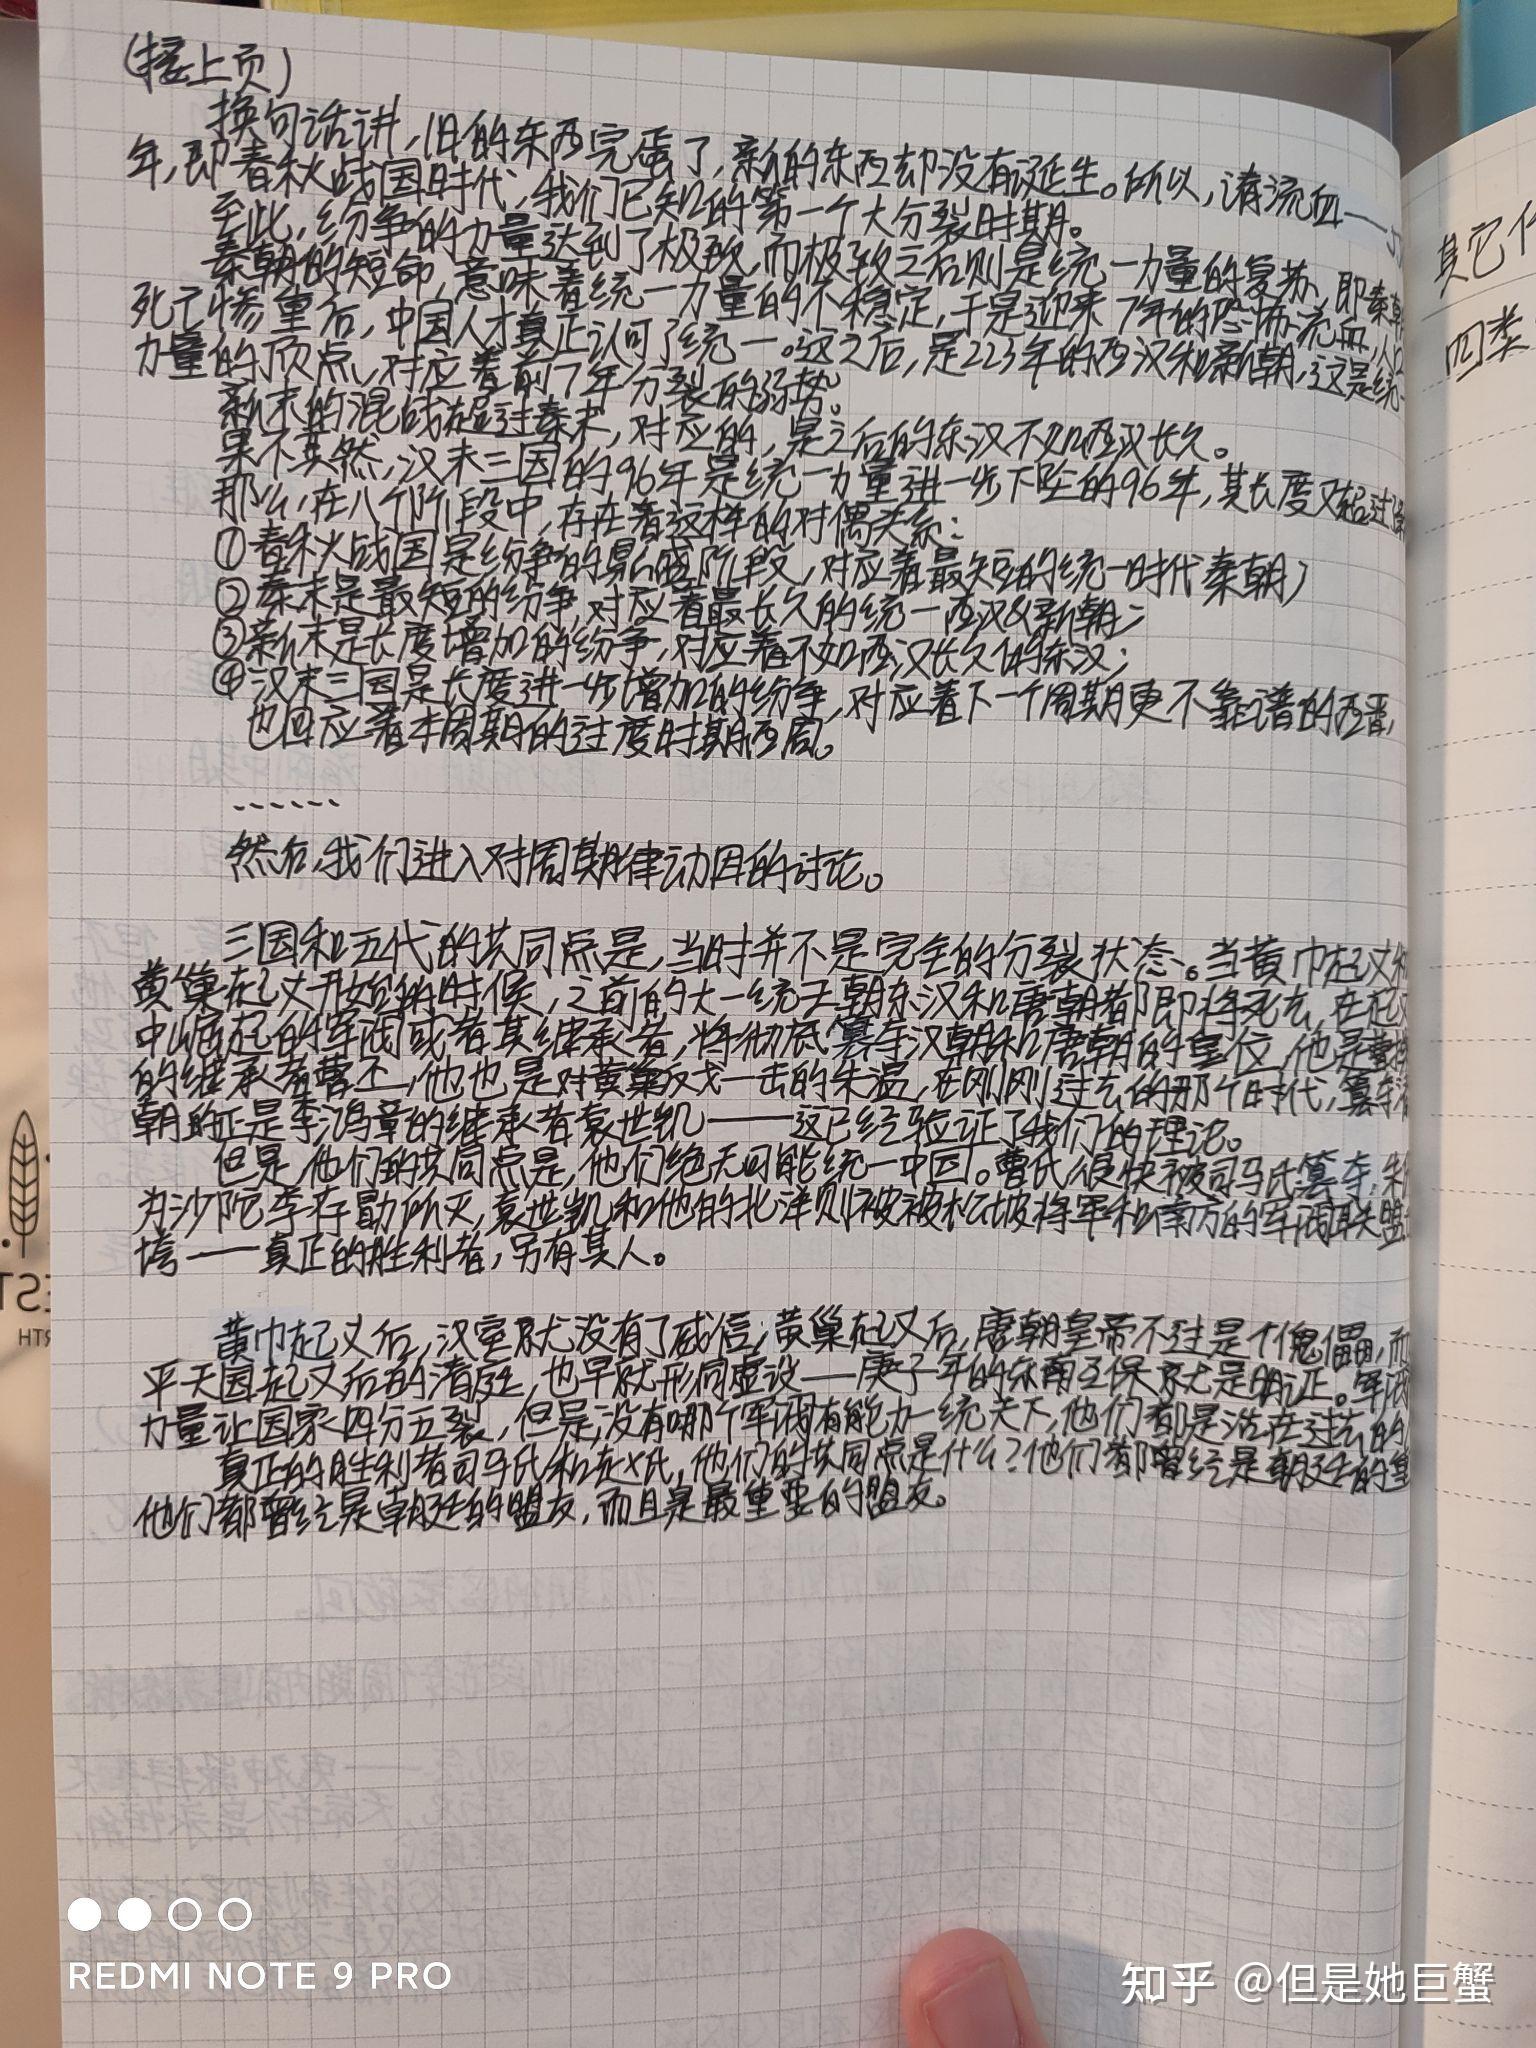 (接上页)
换句话讲,旧的东西完蛋了,新的东西却没有诞生。所以,请流血——
年,即春秋战国时代,我们已知的第一个大分裂时期。
至此,纷争的力量达到了极致,而极致之后则是统一力量的复苏、即秦朝
秦朝的短命,意味着统一力量的不稳定,于是迎来7年的恐怖流血,从
死亡惨重后,中国人才真正认可了统一。这之后,是223年的西汉和新朝,这是统一
力量的顶点,对应着前7年分裂的弱势。
新末的混战超过秦末,对应的,是之后的东汉不如西汉长久。
果不其然,汉末三国的96年是统一力量进一步下坠的96年,其长度又超过
那么,在八个阶段中,存在着这样的对偶关系:
①春秋战国是纷争的最盛阶段,对应着最短的统一时代秦朝;
②秦末是最短的纷争,对应着最长久的统一西汉&新朝;
③新末是长度增加的纷争,对应着不如西汉长久的东汉;
④汉末三国是长度进一步增加的纷争,对应着下一个周期更不靠谱的西晋,
也回应着本周期的过度时期西周。
······
然后,我们进入对周期律动因的讨论。
三国和五代的共同点是,当时并不是完全的分裂状态。当黄巾起义和
黄巢起义开始的时候,之前的大一统王朝东汉和唐朝都即将死去,在起义
中崛起的军阀或者其继承者,将彻底篡夺汉朝和唐朝的皇位,他是曹操
的继承者曹丕,他也是对黄巢反戈一击的朱温,在刚刚过去的那个时代,篡夺清
朝的正是李鸿章的继承者袁世凯——这已经验证了我们的理论。
但是,他们的共同点是,他们绝无可能统一中国。曹氏很快被司马氏篡夺,朱
为沙陀李存勖所灭,袁世凯和他的北洋则被被松坡将军和南方的军阀联盟
垮——真正的胜利者,另有其人。
黄巾起义后,汉室就没有了威信;黄巢起义后,唐朝皇帝不过是个傀儡,而
平天国起义后的清庭,也早就形同虚设——庚子年的东南互保就是明证。军阀
力量让国家四分五裂,但是,没有哪个军阀有能力一统天下,他们都是活在过去的
真正的胜利者司马氏和赵氏,他们的共同点是什么?他们都曾经是朝廷的
他们都曾经是朝廷的盟友,而且是最重要的盟友。
其它
四类
REDMI NOTE 9 PRO
知乎 @但是她巨蟹